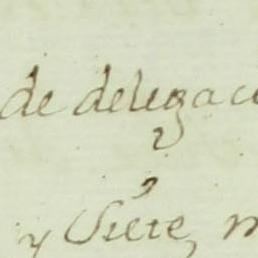 de delegaci
y Siete, m